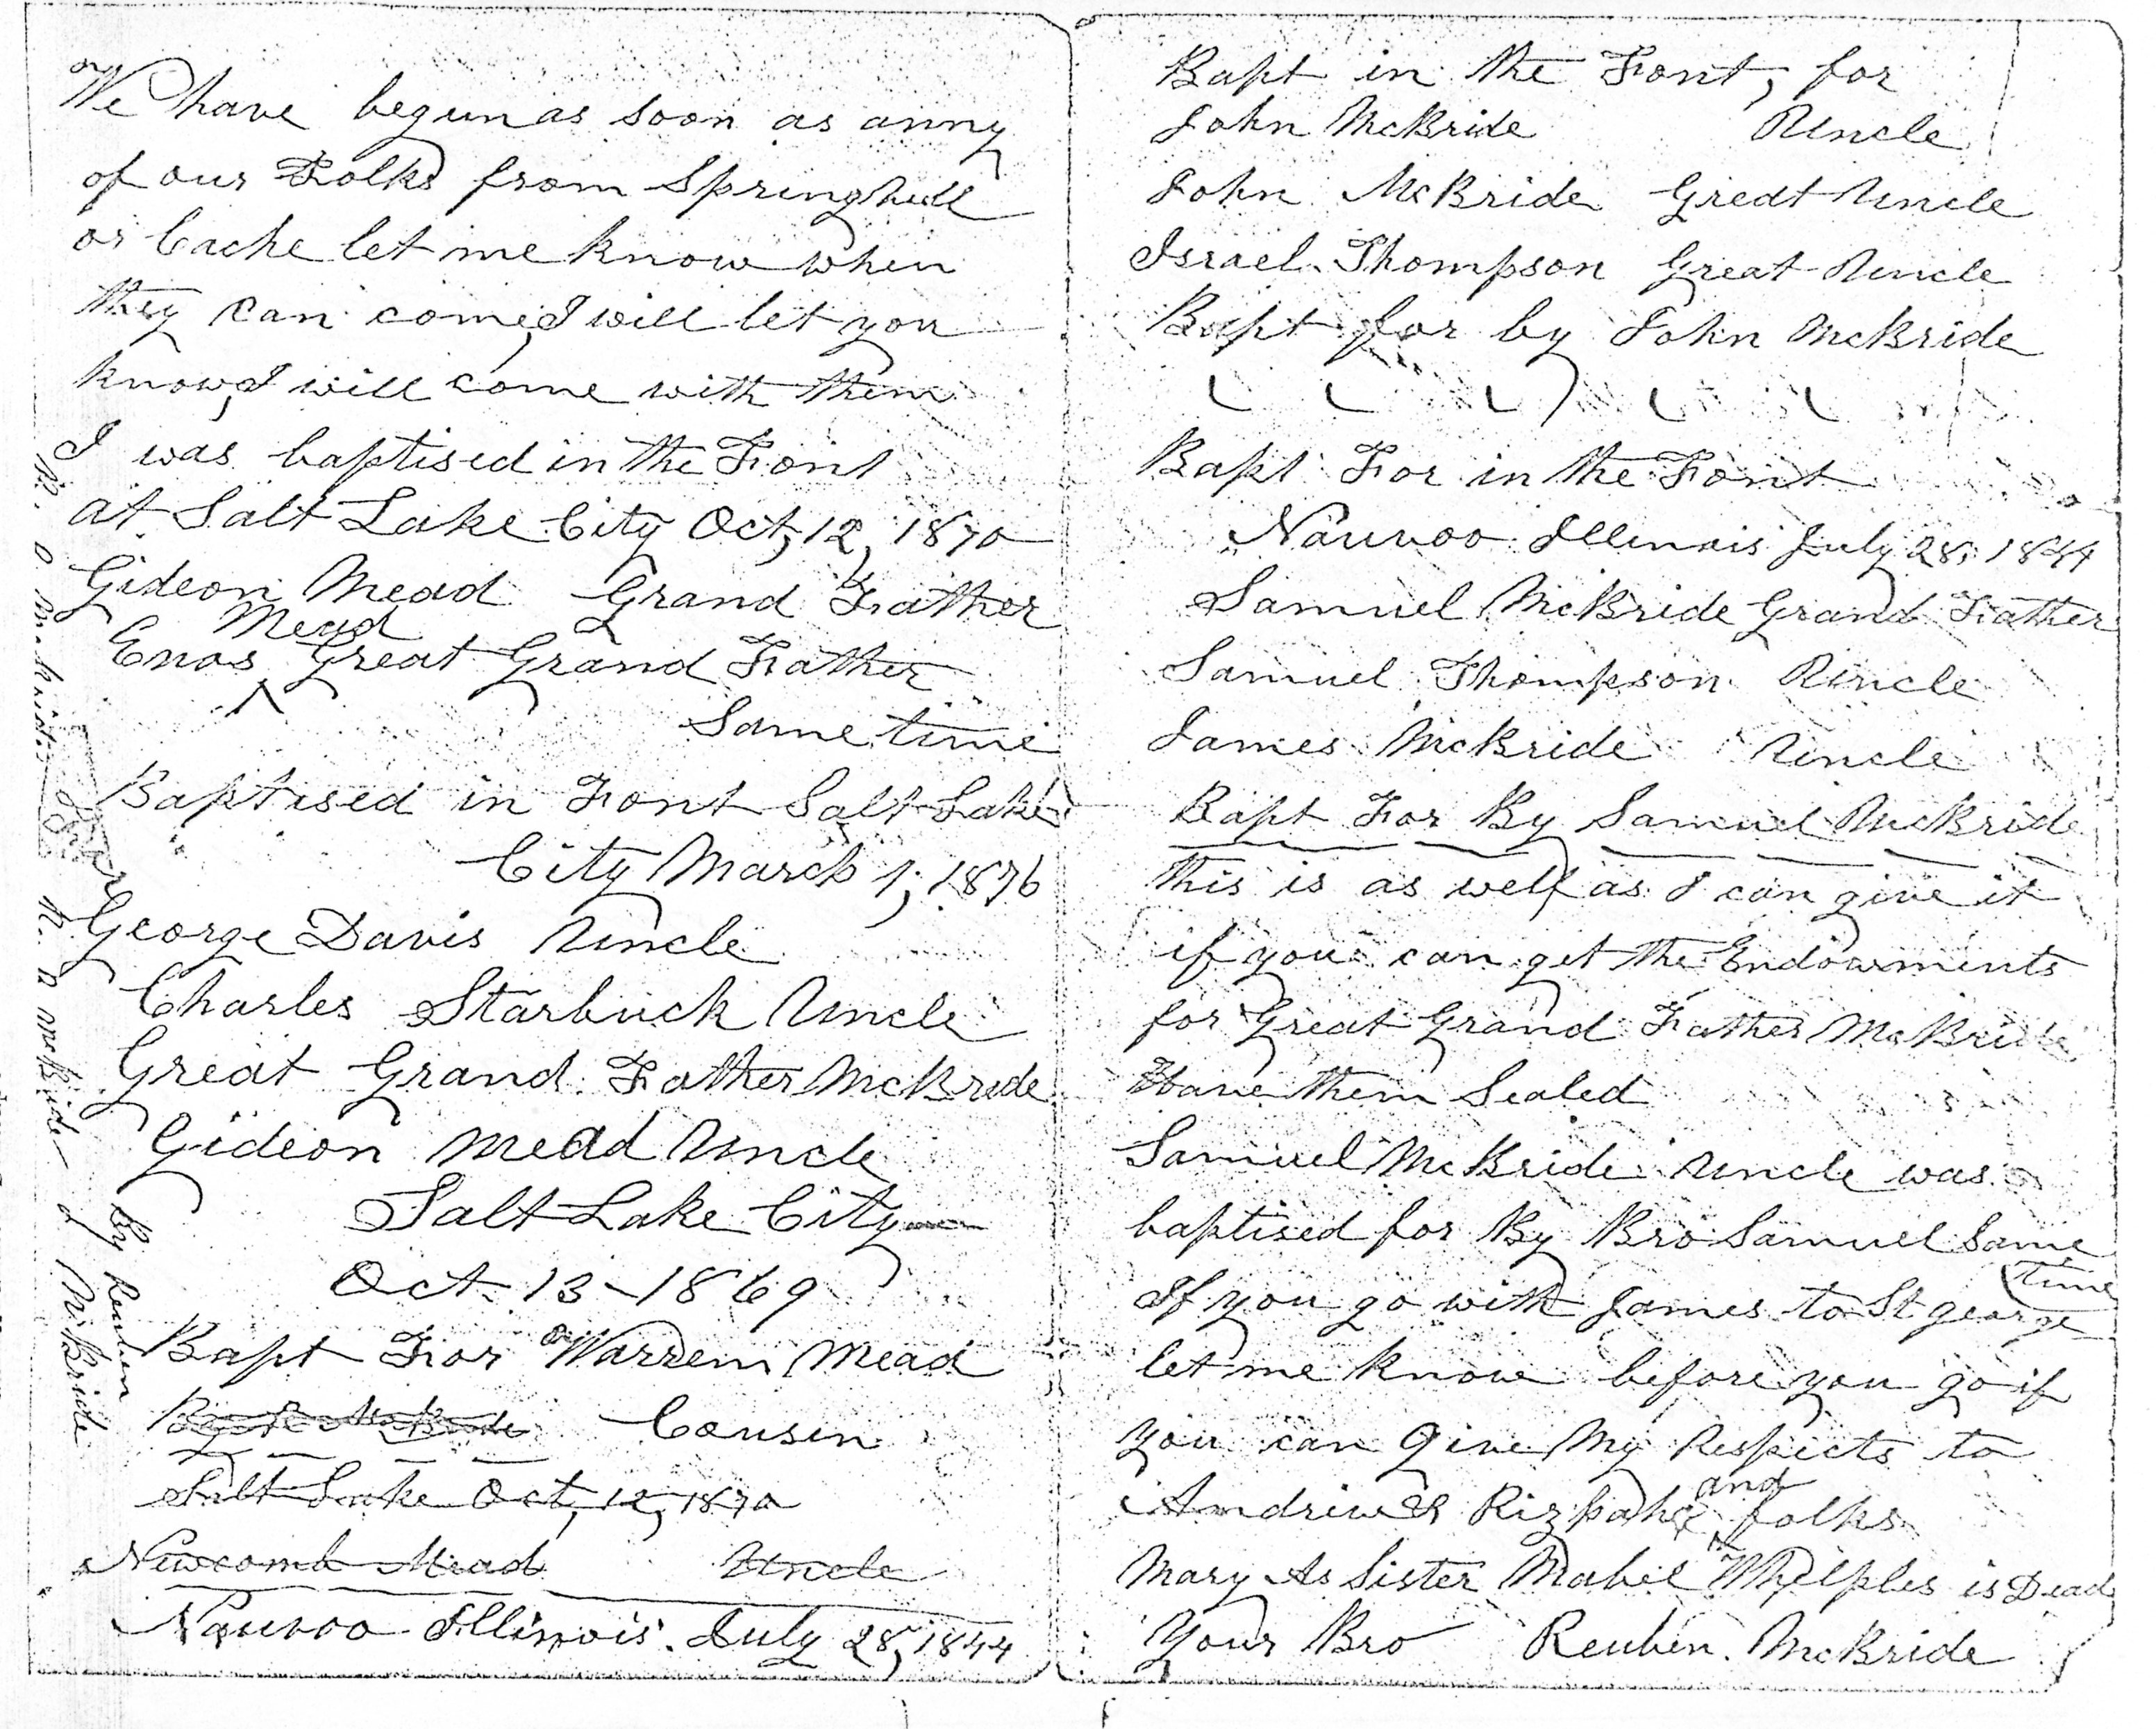 We have begun as soon as anny
of our Folks from Springhill
or Cache let me know when
they can come, I will let you
know, I will come with them
I was baptised in the Font
at Salt Lake City Oct, 12, 1870
Gideon Mead Grand Father
Mead
Enos ^ Great Grand Father
Same time
Baptised in Font Salt Lake
City March 1, 1876
George Davis Uncle
Charles Starbuck Uncle
Great Grand Father McBride
Gideon Mead Uncle
Salt Lake City
Oct 13-1869
Bapt For Warren Mead
Cousin
Salt Lake Oct, 12, 1870
Newcomb Mead Uncle
Nauvoo Illinois. July 28, 1844
By Reuben
McBride
Bapt in the Font, for
John McBride Uncle
John McBride Great Uncle
Israel Thompson Great Uncle
Bapt for by John McBride
Bapt For in the Font
Nauvoo Illinois July 28, 1844
Samuel McBride Grand Father
Samuel Thompson Uncle
James McBride Uncle
Bapt For By Samuel McBride
this is as well as I can give it
if you can get the Endowments
for Great Grand Father McBride
Have them Sealed
Samuel McBride Uncle was
baptised for By Bro Samuel Same
time
If you go with James to St george
let me know before you go if
you can Give My Respects to
and
Rizpah folks
Mary As Sister Mabel Whelples is Dead
Your Bro Reuben. McBride